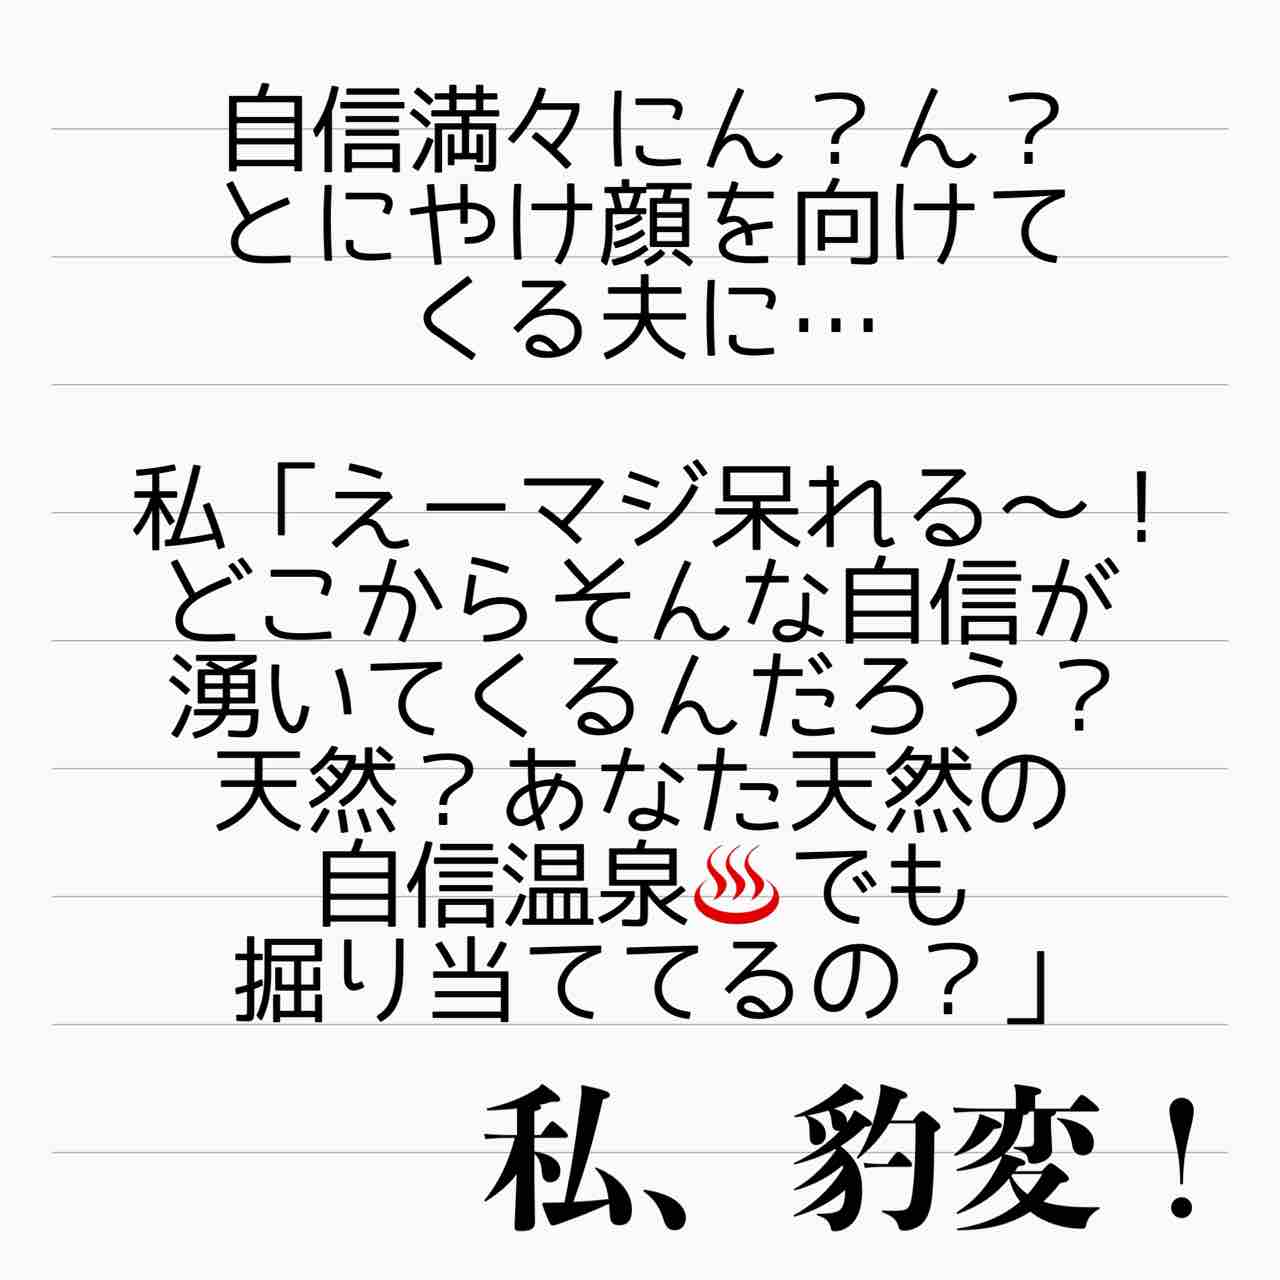 自信満々にん？ん？
とにやけ顔を向けて
くる夫に…
私「えーマジ呆れる〜！
どこからそんな自信が
湧いてくるんだろう？
天然？あなた天然の
自信温泉♨️でも
掘り当ててるの？」
私、豹変！